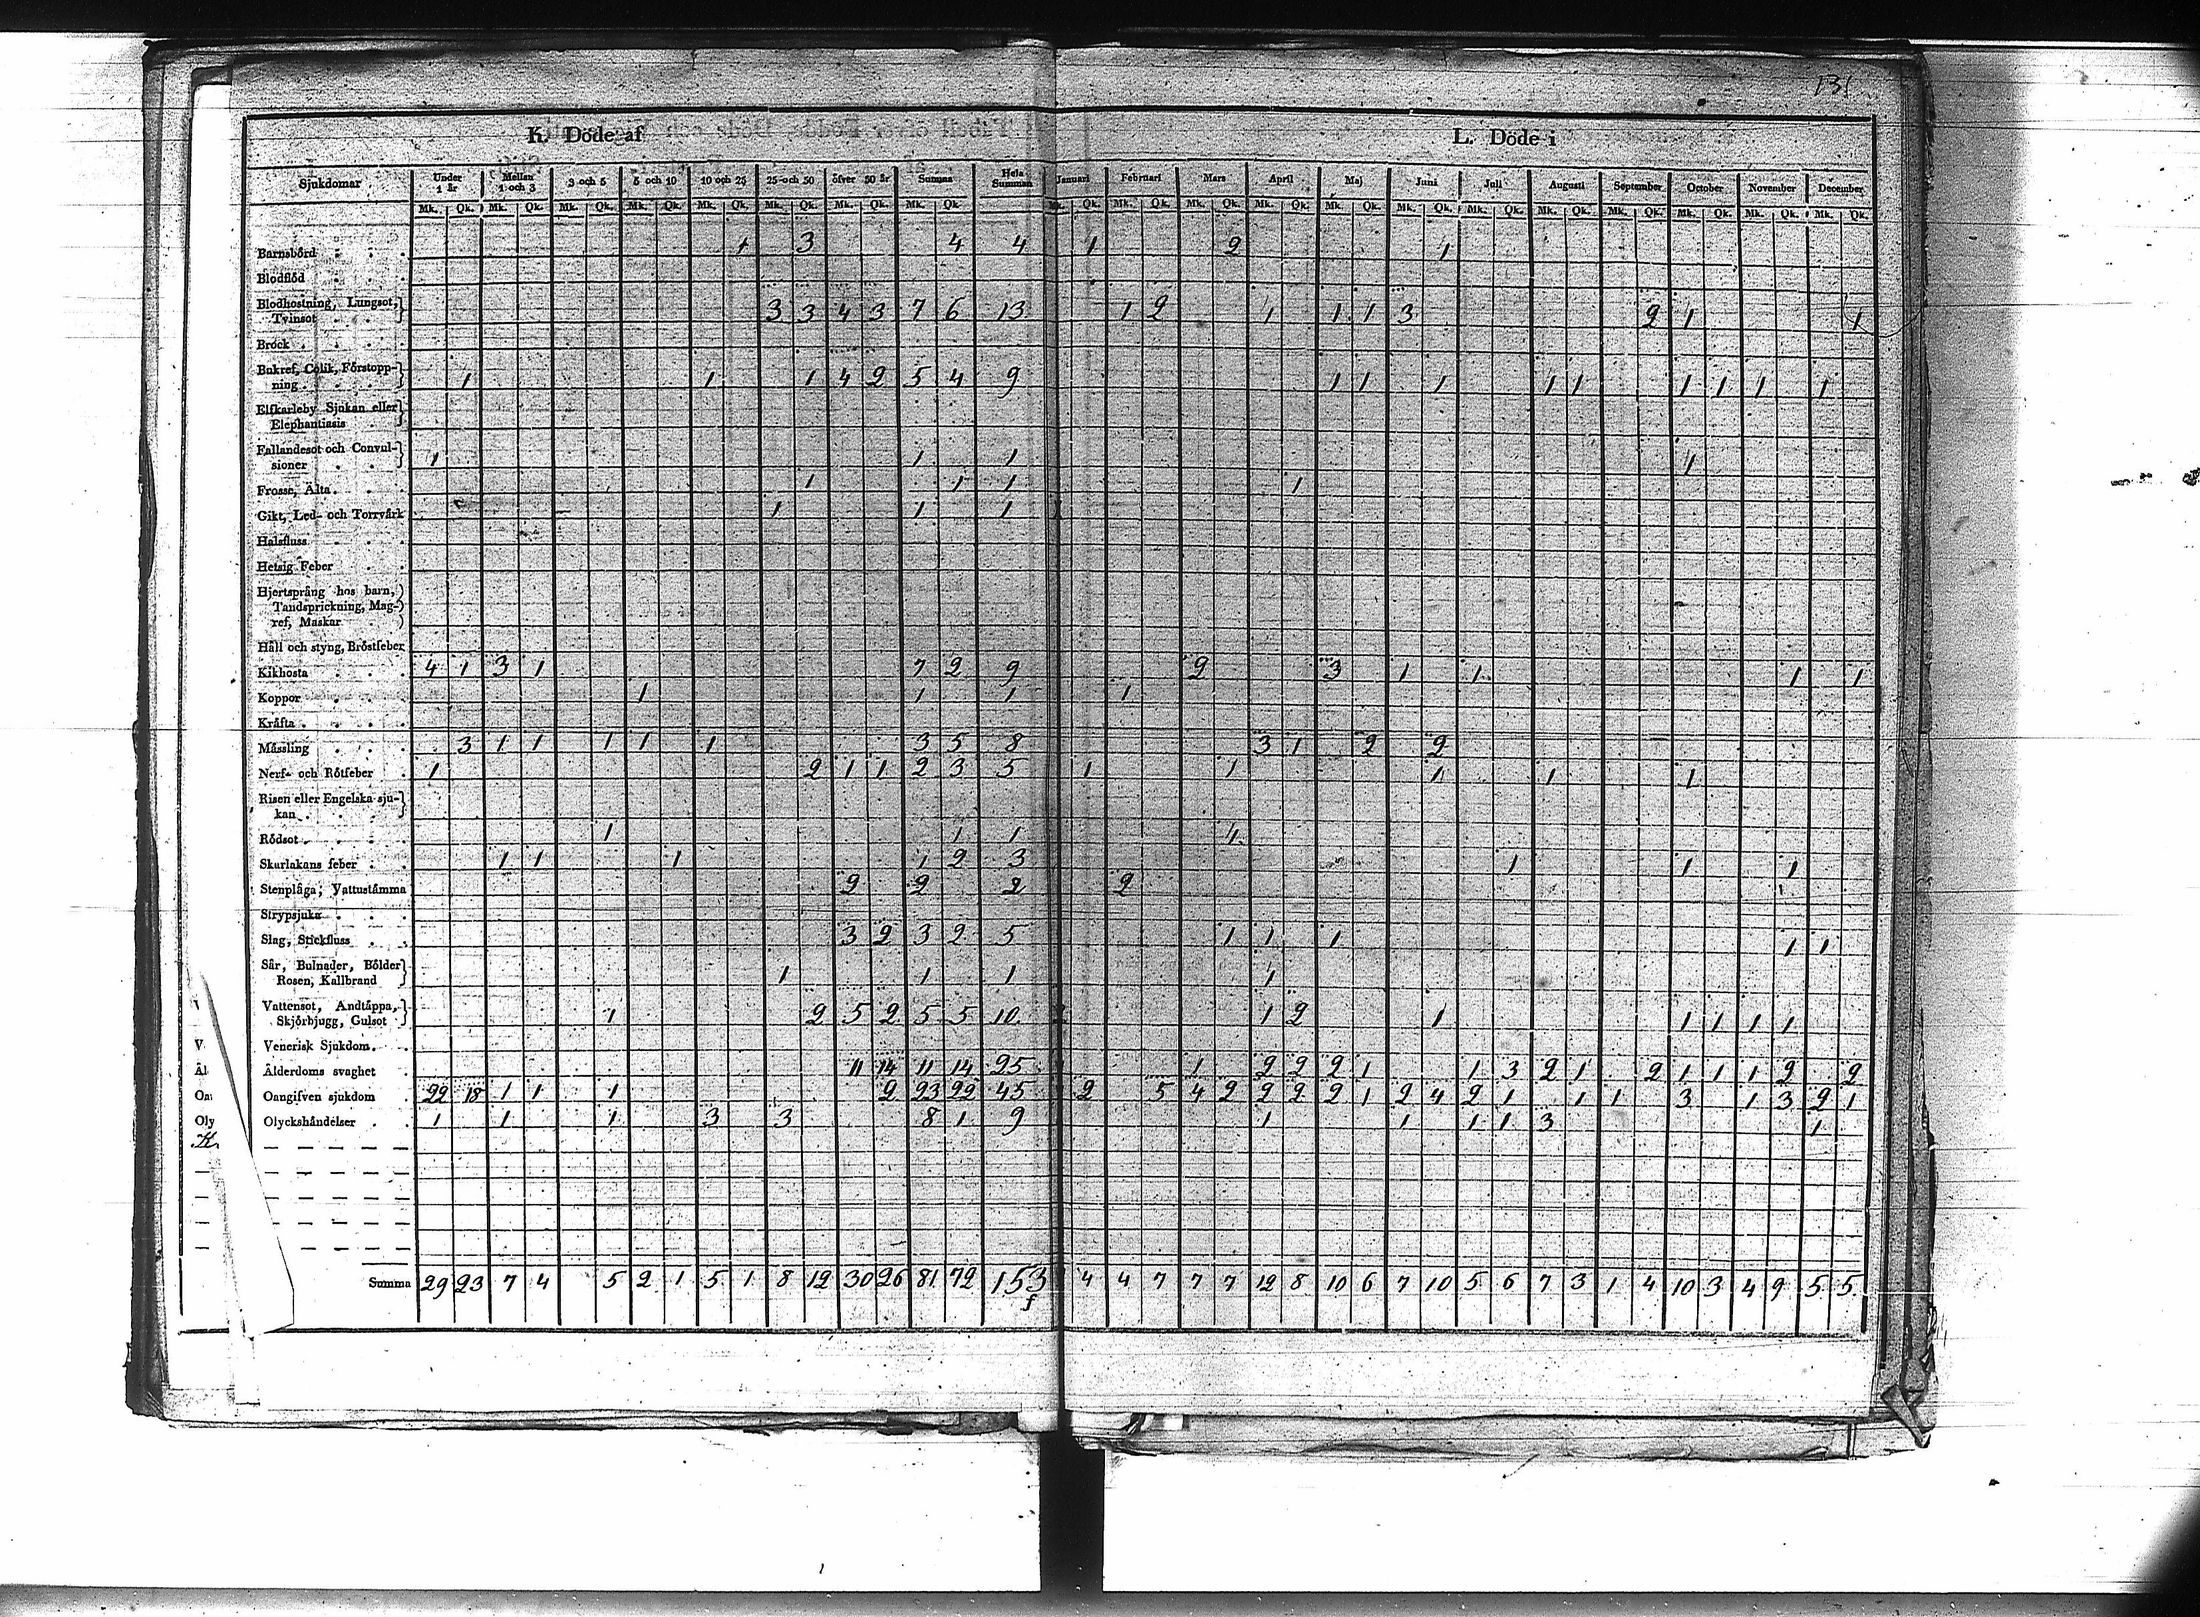 131
K. Döde af L. Döde i
Sjukdomar Under 1 år Mellan 1 och 3 3 och 5 5 och 10 10 och 25 25 och 50 öfver 50 år Summa Hela Summan Januari Februari Mars April Maj Juni Juli Augusti September October November December
Mk. Qk. Mk. Qk. Mk. Qk. Mk. Qk. Mk. Qk. Mk. Qk. Mk. Qk. Mk. Qk. Mk. Qk. Mk. Qk. Mk. Qk. Mk. Qk. Mk. Qk. Mk. Qk. Mk. Qk. Mk. Qk. Mk. Qk. Mk. Qk. Mk. Qk. Mk. Qk.
Barnsbörd 1 3 4 4 1 2 1
Blodflöd
Blodhostning, Lungsot,
Tvinsot 3 3 4 3 7 6 13 1 2 1 1 1 3 2 1 1
Bråck
Bukref, Colik, Förstopp-
ning 1 1 1 4 2 5 4 9 1 1 1 1 1 1 1 1 1
Elfkarleby Sjukan eller
Elephantiasis
Fallandesot och Convul-
sioner 1 1 1 1
Frossa, Älta 1 1 1 1
Gikt, Led- och Torrvärk 1 1 1 1
Halsfluss
Hetsig Feber
Hjertsprång hos barn,
Tandsprickning, Mag-
ref, Maskar
Håll och styng, Bröstfeber
Kikhosta 4 1 3 1 7 2 9 2 3 1 1 1 1
Koppor 1 1 1 1
Kräfta
Mässling 3 1 1 1 1 1 3 5 8 3 1 2 2
Nerf- och Rötfeber 1 2 1 1 2 3 5 1 1 1 1 1
Risen eller Engelska sju-
kan
Rödsot 1 1 1 1
Skarlakans feber 1 1 1 1 2 3 1 1 1
Stenplåga, Vattustämma 2 2 2 2
Strypsjuka
Slag, Stickfluss 3 2 3 2 5 1 1 1 1 1
Sår, Bulnader, Bölder
Rosen, Kallbrand 1 1 1 1
Vattensot, Andtäppa,
Skjörbjugg, Gulsot 1 2 5 2 5 5 10 2 1 2 1 1 1 1 1
V Venerisk Sjukdom
Ål Ålderdoms svaghet 11 14 11 14 25 1 2 2 2 1 1 3 2 1 2 1 1 1 2 2
Oan Oangifven sjukdom 22 18 1 1 1 2 23 22 45 2 5 4 2 2 2 2 1 2 4 2 1 1 1 3 1 3 2 1
Oly Olyckshändelser 1 1 1 3 3 8 1 9 1 1 1 1 3 1
Summa 29 23 7 4 5 2 1 5 1 8 12 30 26 81 72 153 4 4 7 7 7 12 8 10 6 7 10 5 6 7 3 1 4 10 3 4 9 5 5